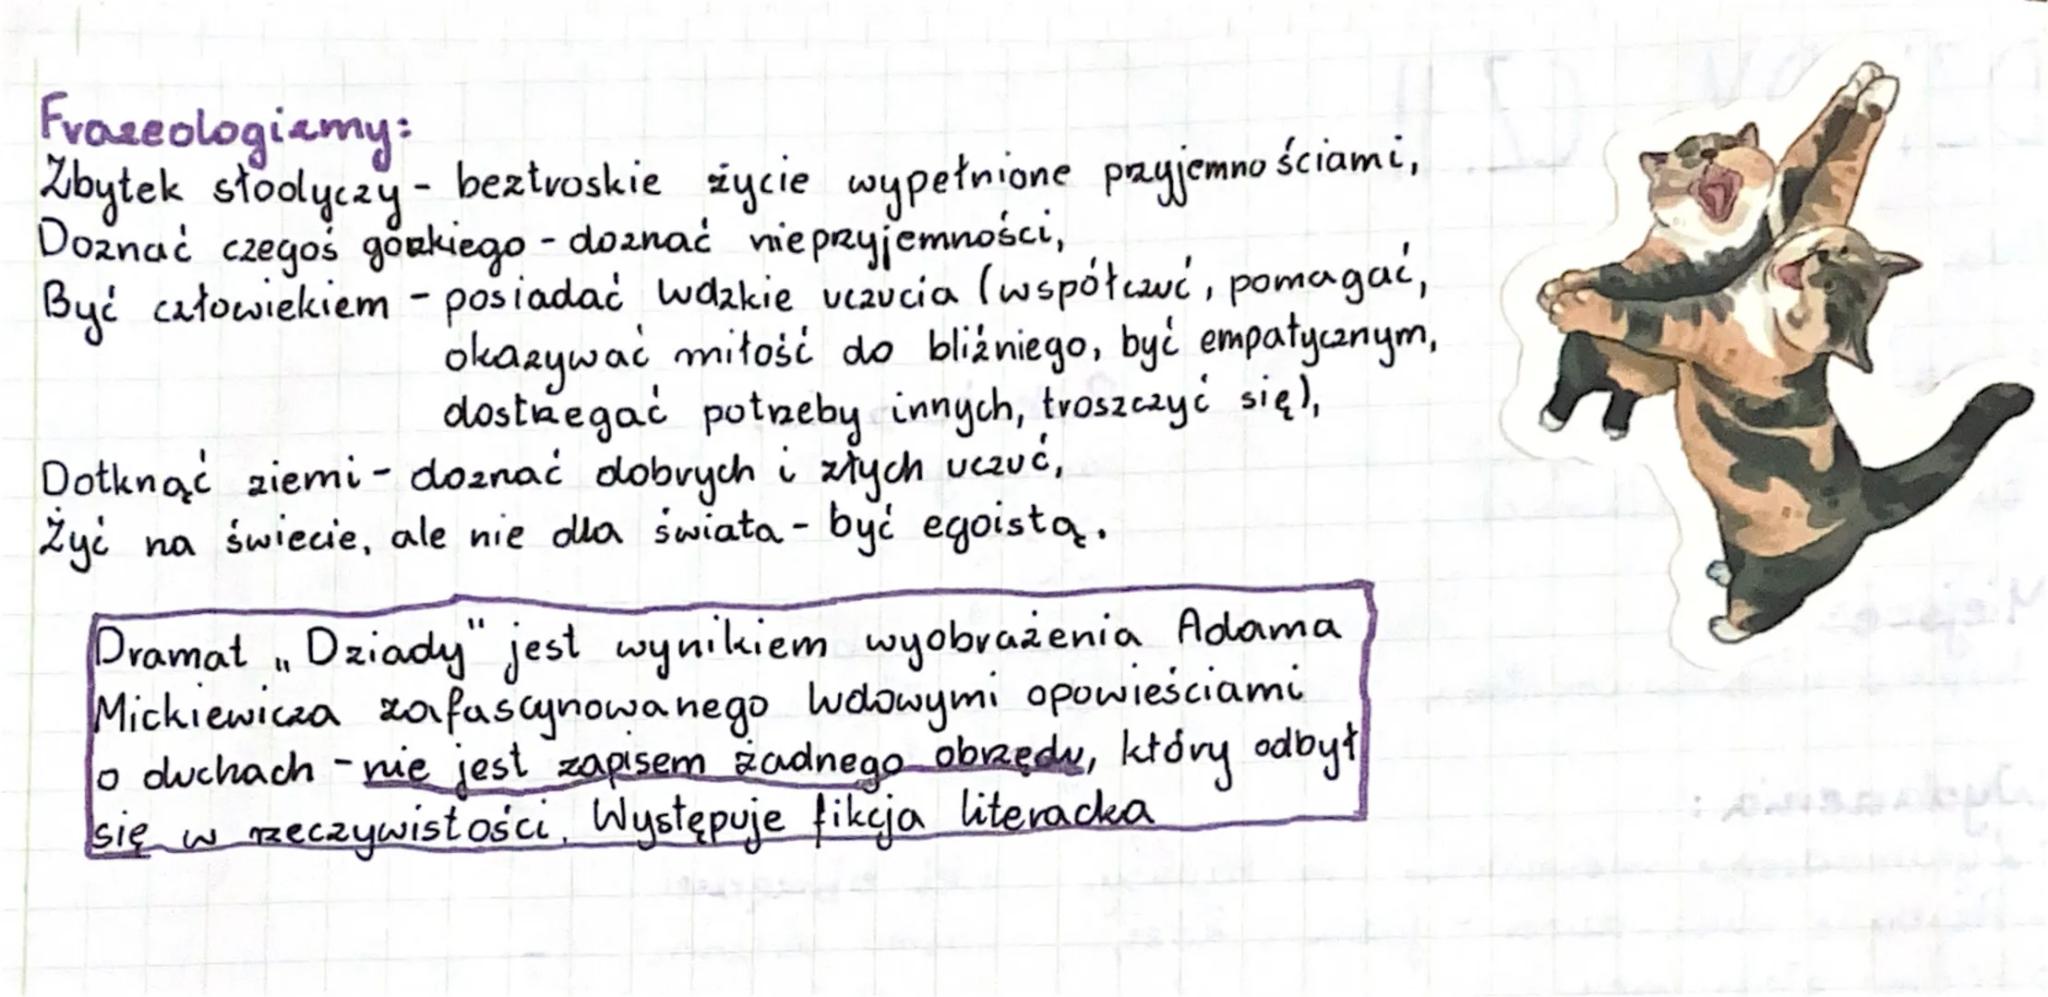 Frazeologizmy:
Zbytek słodyczy - beztroskie życie wypełnione przyjemnościami,
Doznać czegoś gorzkiego - doznać nieprzyjemności,
Być człowiekiem - posiadać ludzkie uczucia (współczuć, pomagać,
okazywać miłość do bliźniego, być empatycznym,
dostrzegać potrzeby innych, troszczyć się),
Dotknąć ziemi - doznać dobrych i złych uczuć,
Żyć na świecie, ale nie dla świata - być egoistą.
Dramat „Dziady" jest wynikiem wyobrażenia Adama
Mickiewicza zafascynowanego ludowymi opowieściami
o duchach - nie jest zapisem żadnego obrzędu, który odbył
się w rzeczywistości. Występuje fikcja literacka